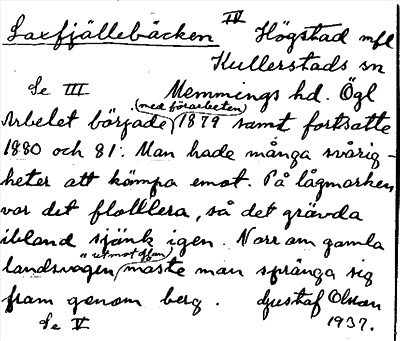 Laxfjällebäcken IV Högstad mfl
Kullerstads sn
Se III Memmings hd. Ögl
Arbetet började (med förarbeten) 1879 samt fortsatte
1880 och 81. Man hade många svårig-
heter att kämpa emot. På lågmarken
var det flottlera, så det grävda
ibland sjönk igen. Norr om gamla
landsvägen "utmot åsen måste man spränga sig
fram genom berg. Gustaf Olsson
Se V 1937.